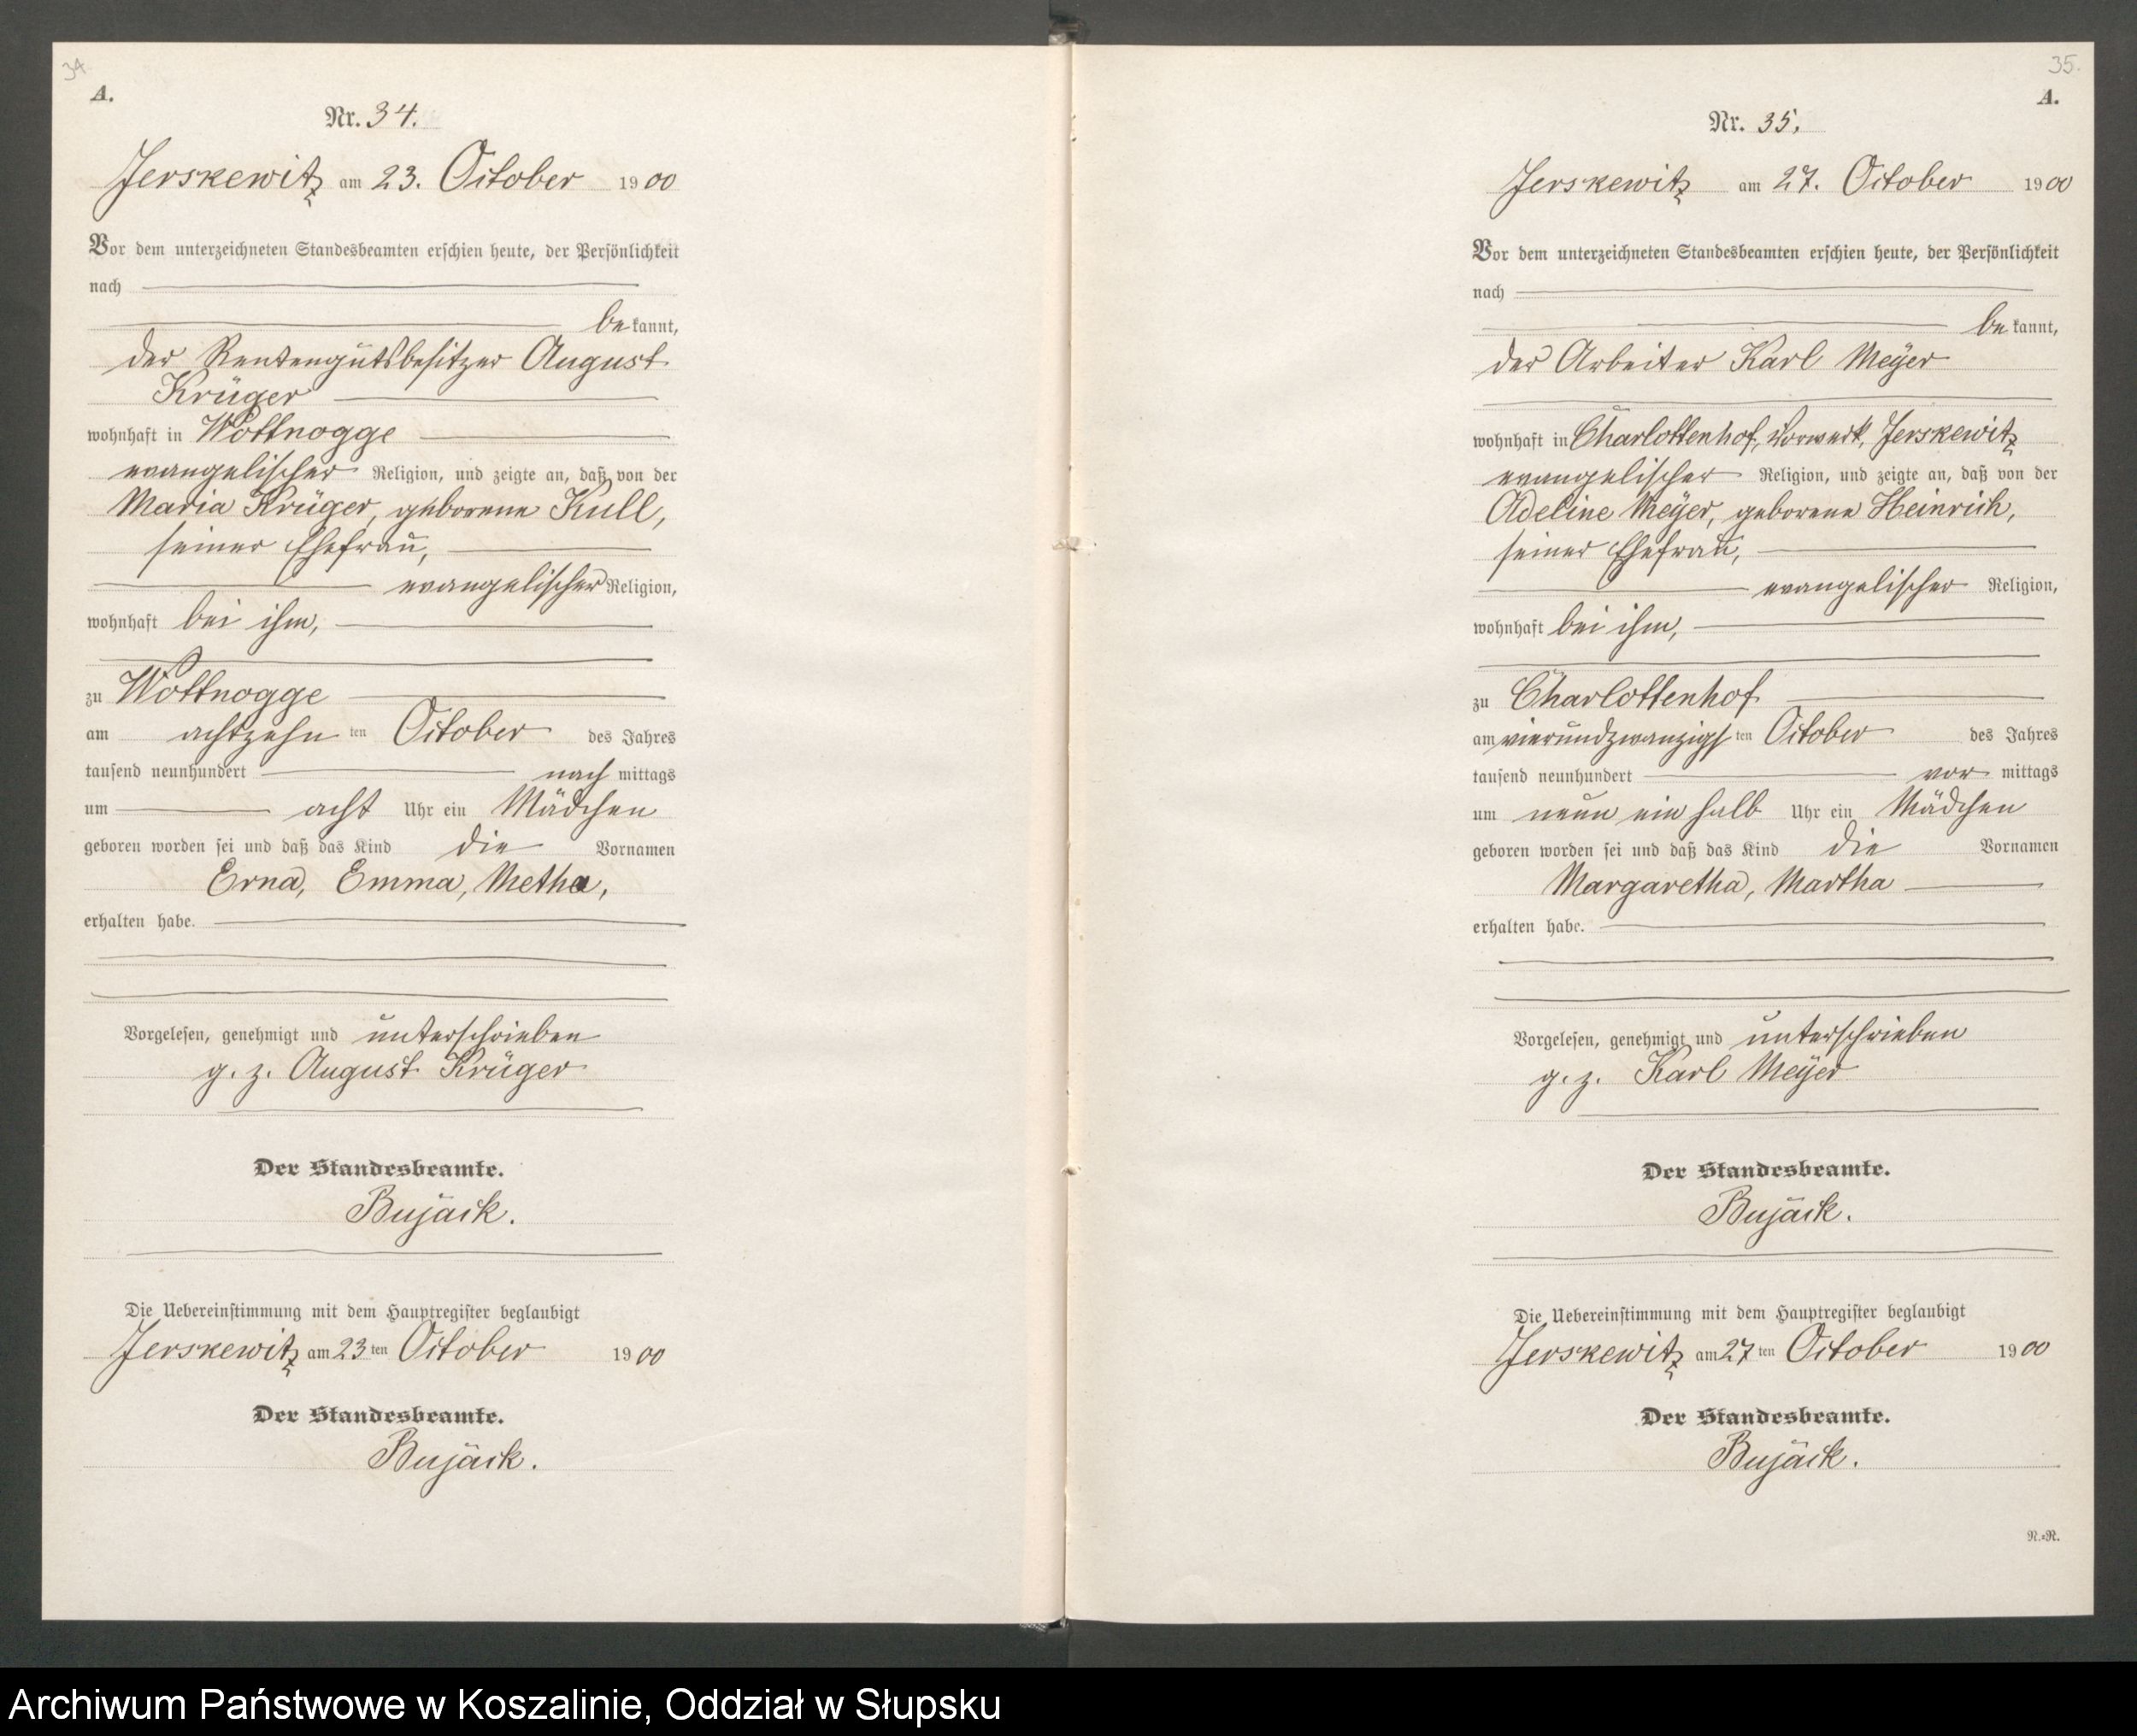 34
A.
Nr. 34.
Jerskewitz am 23. October 1900
Vor dem unterzeichneten Standesbeamten erschien heute, der Persönlichkeit
nach
bekannt,
der Rentengutsbesitzer August
Krüger
wohnhaft in Wottnogge
evangelischer Religion, und zeigte an, daß von der
Maria Krüger, geborene Kull,
seiner Ehefrau,
evangelischer Religion,
wohnhaft bei ihm,
zu Wottnogge
am achtzehnten October des Jahres
tausend neunhundert nachmittags
um acht Uhr ein Mädchen
geboren worden sei und daß das Kind die Vornamen
Erna, Emma, Metha,
erhalten habe.
Vorgelesen, genehmigt und unterschrieben
g. z. August Krüger
Der Standesbeamte.
Bujack.
Die Uebereinstimmung mit dem Hauptregister beglaubigt
Jerskewitz am 23ten October 1900
Der Standesbeamte.
Bujack.
35.
A.
Nr. 35.
Jerskewitz am 27. October 1900
Vor dem unterzeichneten Standesbeamten erschien heute, der Persönlichkeit
nach
bekannt,
der Arbeiter Karl Meyer
wohnhaft in Charlottenhof, Vorwerk, Jerskewitz
evangelischer Religion, und zeigte an, daß von der
Adeline Meyer, geborene Heinrich,
seiner Ehefrau,
evangelischer Religion,
wohnhaft bei ihm,
zu Charlottenhof
am vierundzwanzigsten October des Jahres
tausend neunhundert vormittags
um neun ein halb Uhr ein Mädchen
geboren worden sei und daß das Kind die Vornamen
Margaretha, Martha
erhalten habe.
Vorgelesen, genehmigt und unterschrieben
g. z. Karl Meyer
Der Standesbeamte.
Bujack.
Die Uebereinstimmung mit dem Hauptregister beglaubigt
Jerskewitz am 27ten October 1900
Der Standesbeamte.
Bujack.
N.=R.
Archiwum Państwowe w Koszalinie, Oddział w Słupsku